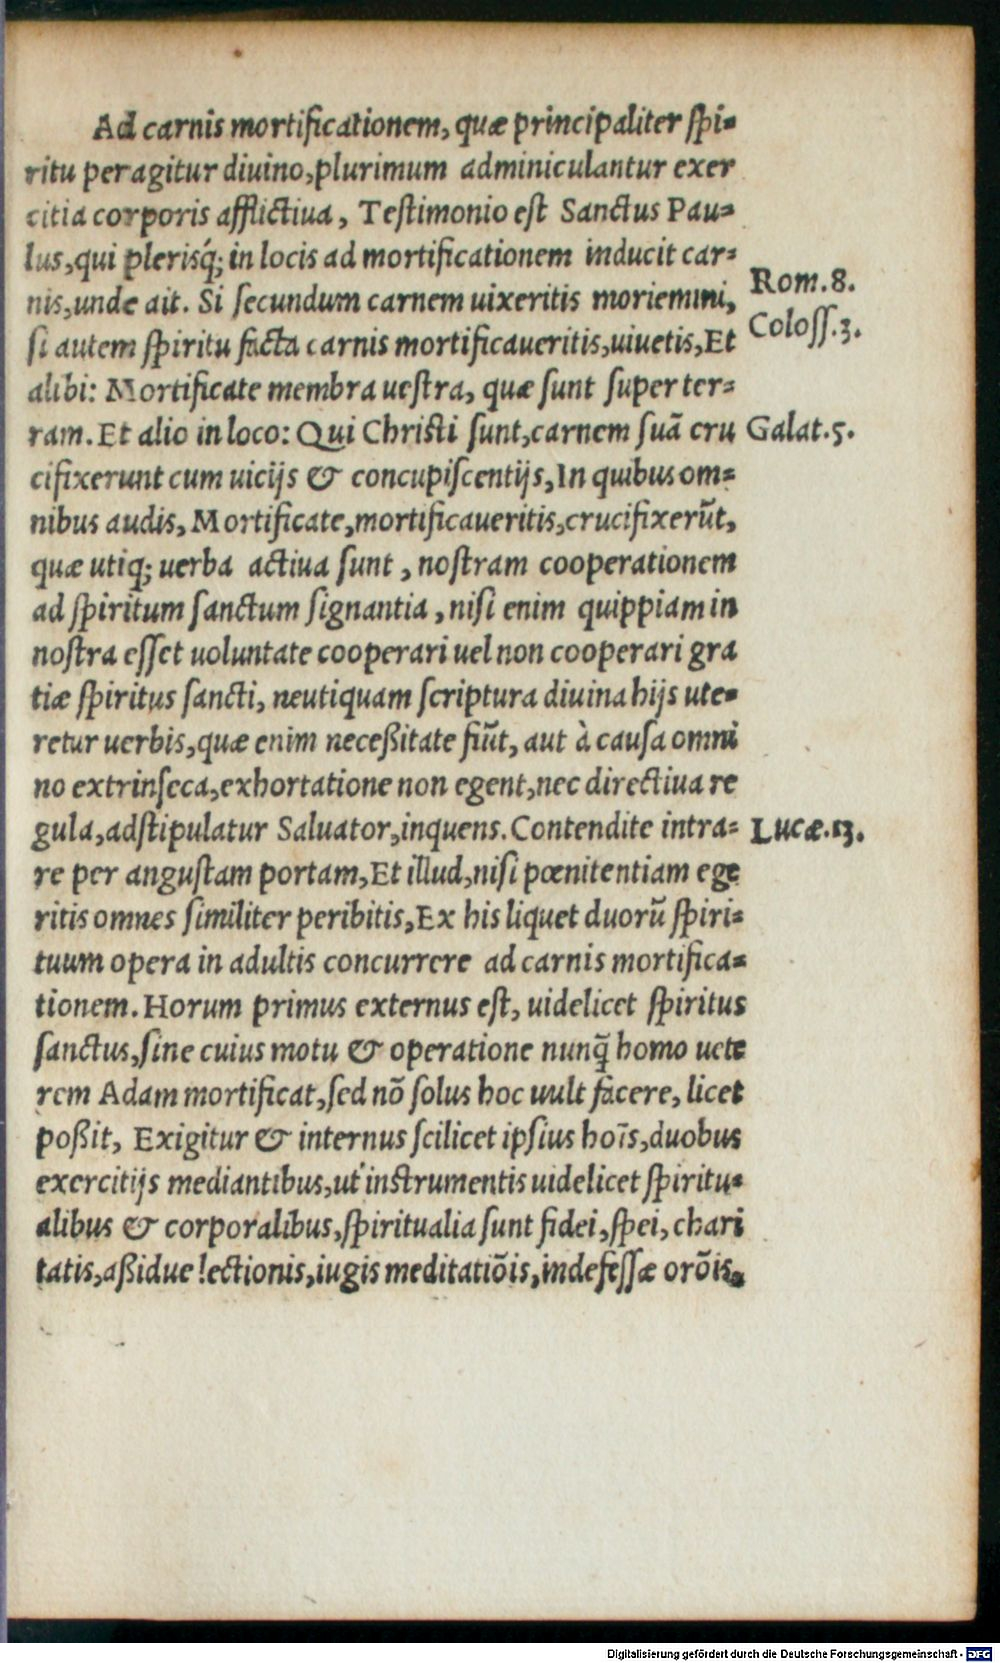 Ad carnis mortificationem, quæ principaliter ſpi=
ritu peragitur diuino, plurimum adminiculantur exer
citia corporis afflictiua, Teſtimonio eſt Sanctus Pau=
lus, qui pleriſq́; in locis ad mortificationem inducit car=
nis, unde ait. Si ſecundum carnem uixeritis moriemini,
Rom. 8.
ſi autem ſpiritu facta carnis mortificaueritis, uiuetis, Et
Coloſſ. 3.
alibi: Mortificate membra ueſtra, quæ ſunt ſuper ter=
ram. Et alio in loco: Qui Chriſti ſunt, carnem ſuã cru
Galat. 5.
cifixerunt cum uicijs & concupiſcentijs, In quibus om=
nibus audis, Mortificate, mortificaueritis, crucifixerũt,
quæ utiq; uerba actiua ſunt, noſtram cooperationem
ad ſpiritum ſanctum ſignantia, niſi enim quippiam in
noſtra eſſet uoluntate cooperari uel non cooperari gra
tiæ ſpiritus ſancti, neutiquam ſcriptura diuina hijs ute=
retur uerbis, quæ enim neceßitate fiũt, aut à cauſa omni
no extrinſeca, exhortatione non egent, nec directiua re
gula, adſtipulatur Saluator, inquens. Contendite intra=
Lucæ. 13.
re per anguſtam portam, Et illud, niſi pœnitentiam ege
ritis omnes ſimiliter peribitis, Ex his liquet duorũ ſpiri=
tuum opera in adultis concurrere ad carnis mortifica=
tionem. Horum primus externus eſt, uidelicet ſpiritus
ſanctus, ſine cuius motu & operatione nunq̃ homo uete
rem Adam mortificat, ſed nõ ſolus hoc uult facere, licet
poßit, Exigitur & internus ſcilicet ipſius hoĩs, duobus
exercitijs mediantibus, ut inſtrumentis uidelicet ſpiritu=
alibus & corporalibus, ſpiritualia ſunt fidei, ſpei, chari
tatis, aßidue lectionis, iugis meditatiõis, indefeſſæ orõis,
Digitalisierung gefördert durch die Deutsche Forschungsgemeinschaft - DFG